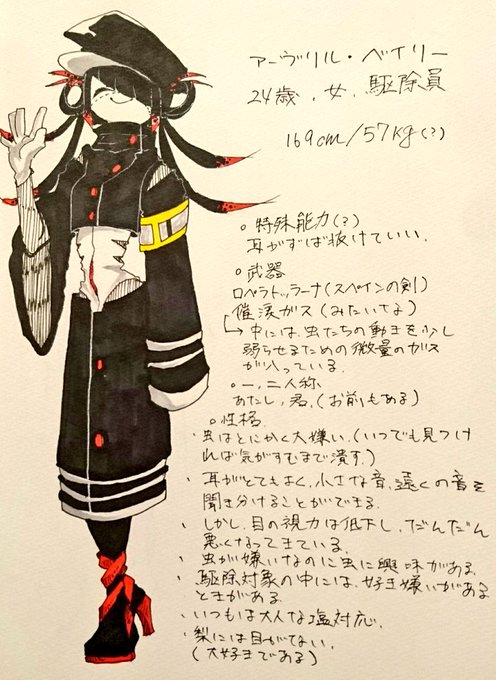 アーヴリル・ベイリー
24歳、女、駆除員
169cm/57kg(?)
○特殊能力(?)
耳がずば抜けていい、
○武器
ロペラトッラーナ(スペインの剣)
催涙ガス(みたいなよ)
↳中には、虫たちの動きを少し
弱らせるための微量のガス
が入っている.
○一、二人称
あたし、君、(お前もある)
○性格
・虫はとにかく大嫌い、(いつでも見つけ
れば気がすむまで潰す.)
・耳がとてもよく、小さな音、遠くの音を
聞き分けることができる.
・しかし、目の視力は低下し、だんだん
悪くなってきている.
・虫が嫌いなのに虫に興味がある.
・駆除対象の中には、好き嫌いがある
ときがある
・いつもは大人な塩対応.
・梨には目がない、
(大好きである)